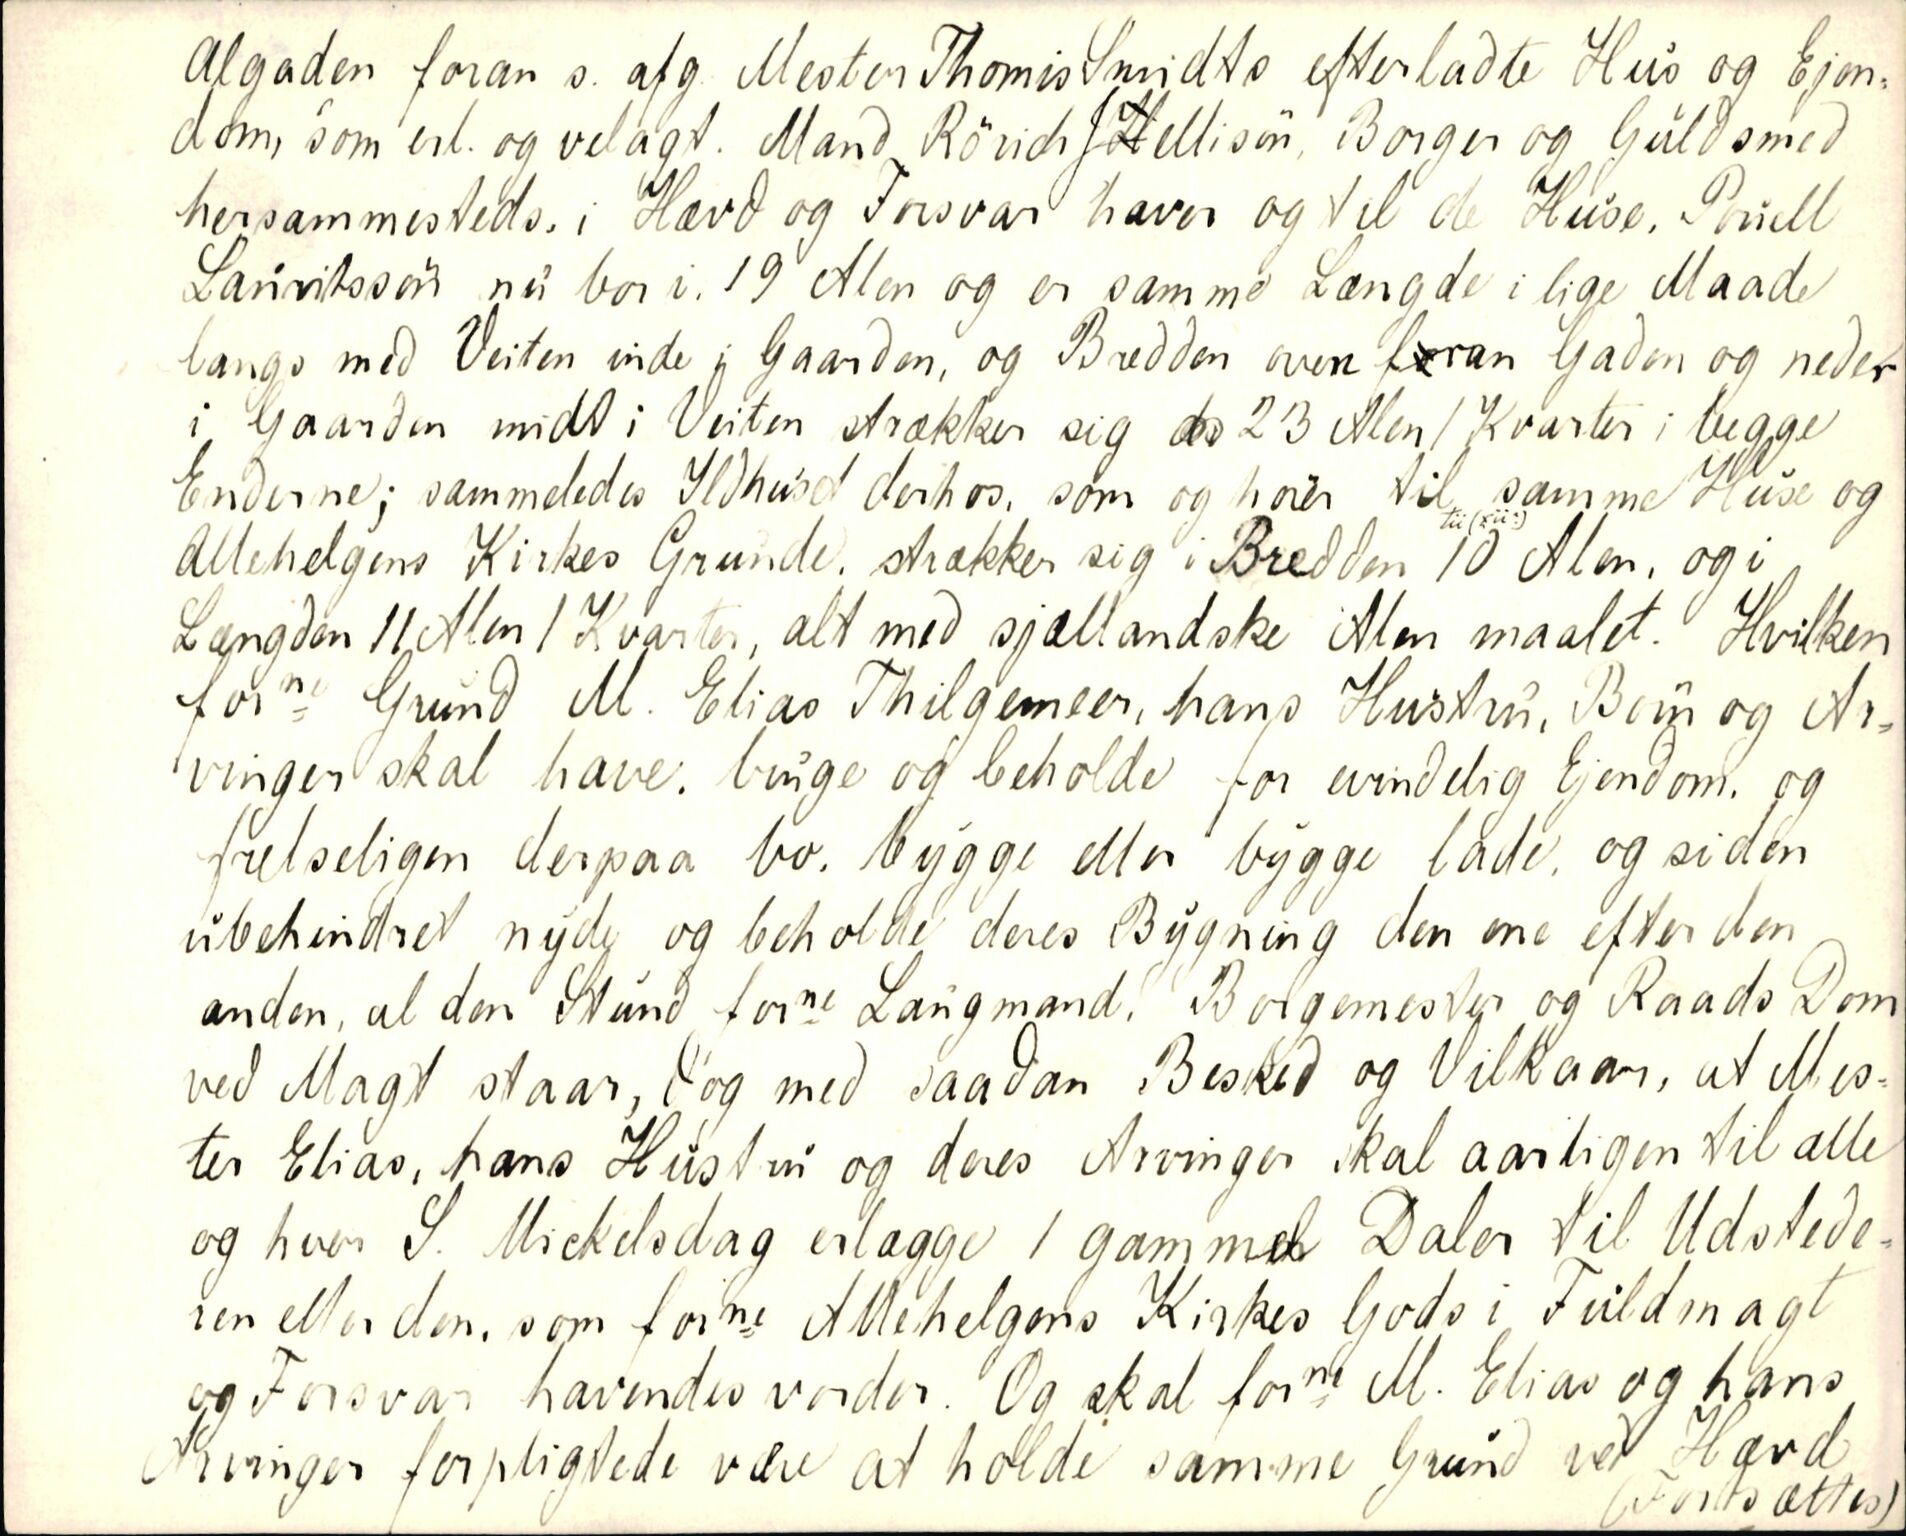 Algaden foran s. afg. Mester Thomis Smidts efterladte Hus og Ejen=
dom, som erl. og velagt. Mand Rörich Jellisön, Borger og Guldsmed
hersammesteds, i Hævd og Forsvar haver og til de Huse, Pouell
Lauritssön nu bor i, 19 Alen og er samme Længde i lige Maade
langs med Veiten inde i Gaarden, og Bredden oven foran Gaden og neder
i Gaarden midt i Veiten strækker sig 23 Alen 1 Kvarter i begge
Enderne; sammeledes Ildhuset derhos, som og hører til samme Huse og
Allehelgens Kirkes Grunde, strækker sig i Bredden 10 Alen, og i
Længden 11 Alen 1 Kvarter, alt med sjællandske Alen maalet. Hvilken
forne Grund M. Elias Thilgemeer, hans Hustru, Börn og Ar=
vinger skal have, bruge og beholde for evindelig Ejendom, og
frelseligen derpaa bo, bygge eller bygge lade, og siden
ubehindret nyde og beholde deres Bygning den ene efter den
anden, al den Stund forne Laugmand, Borgemester og Raads Dom
ved Magt staar, dog med saadan Besked og Vilkaar, at Mes=
ter Elias, hans Hustru og deres Arvinger skal aarligen til alle
og hver S. Mickelsdag erlægge 1 gammel Daler til Udstede=
ren eller den, som forne Allehelgens Kirkes Gods i Fuldmagt
og Forsvar havendes vorder. Og skal forne M. Elias og hans
Arvinger forpligtede være at holde samme Grund ved Hævd
(Fortsættes)